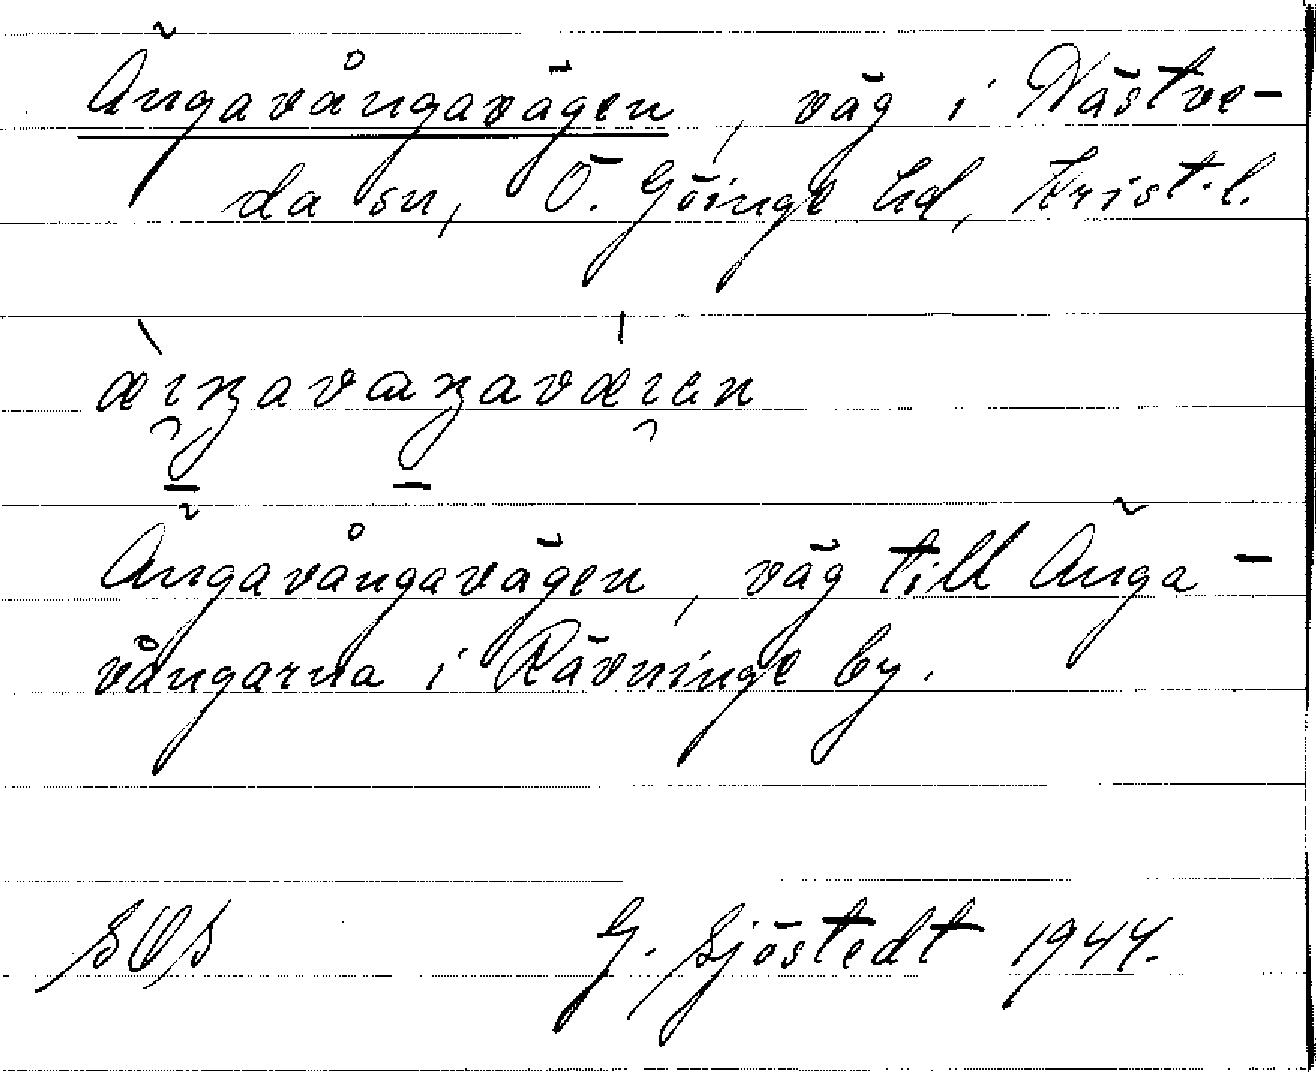 Ängavångavägen, väg i Nästve-
da sn, Ö. Göinge hd, Krist. l.
Ängavångavägen, väg till Änga-
vångarna i Rävninge by.
G. Sjöstedt 1944.